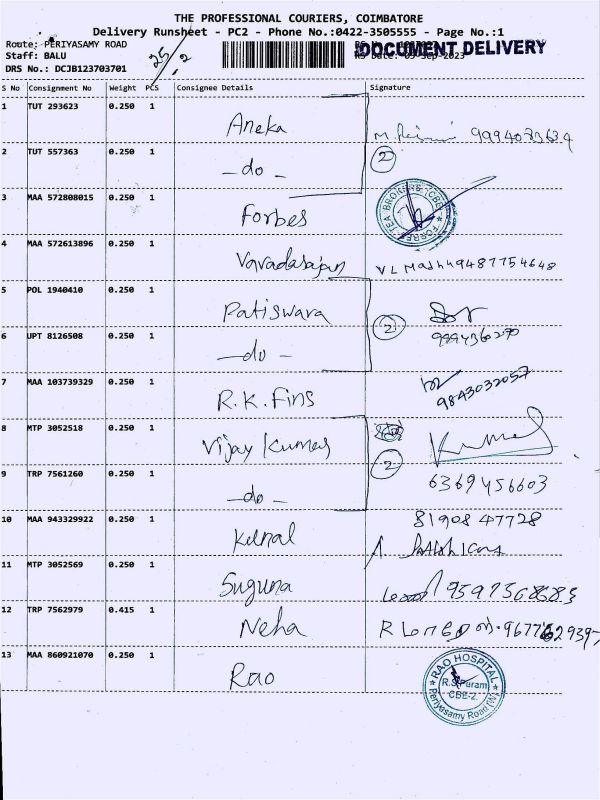 THE PROFESSIONAL COURIERS, COIMBATORE
Delivery Runsheet - PC2 - Phone No.:0422-3505555 - Page No.:1
Route: PERIYASAMY ROAD
DOCUMENT DELIVERY
Staff: BALU
RS Date: 09-Sep-2023
DRS No.: DCJB123703701
25/2
S No Consignment No Weight PCS Consignee Details Signature
1 TUT 293623 0.250 1 Aneka 9994073634
2 TUT 557363 0.250 1 -do- 2
3 MAA 572808015 0.250 1 Forbes
TEA BROKERS (CBE)
4 MAA 572613896 0.250 1 Varadarajan 9487754648
5 POL 1940410 0.250 1 Patiswara 2
6 UPT 8126508 0.250 1 -do- 9994360290
7 MAA 103739329 0.250 1 R.K.Fins 9843032057
8 MTP 3052518 0.250 1 Vijay Kumar Kumar
2
9 TRP 7561260 0.250 1 -do- 6369456603
10 MAA 943329922 0.250 1 81908 47728
11 MTP 3052569 0.250 1 Suguna 9597568683
12 TRP 7562979 0.415 1 Neha
13 MAA 860921070 0.250 1 Rao
RAO HOSPITAL
R.S.Puram
CBE-2.
Periyasamy Road (W)